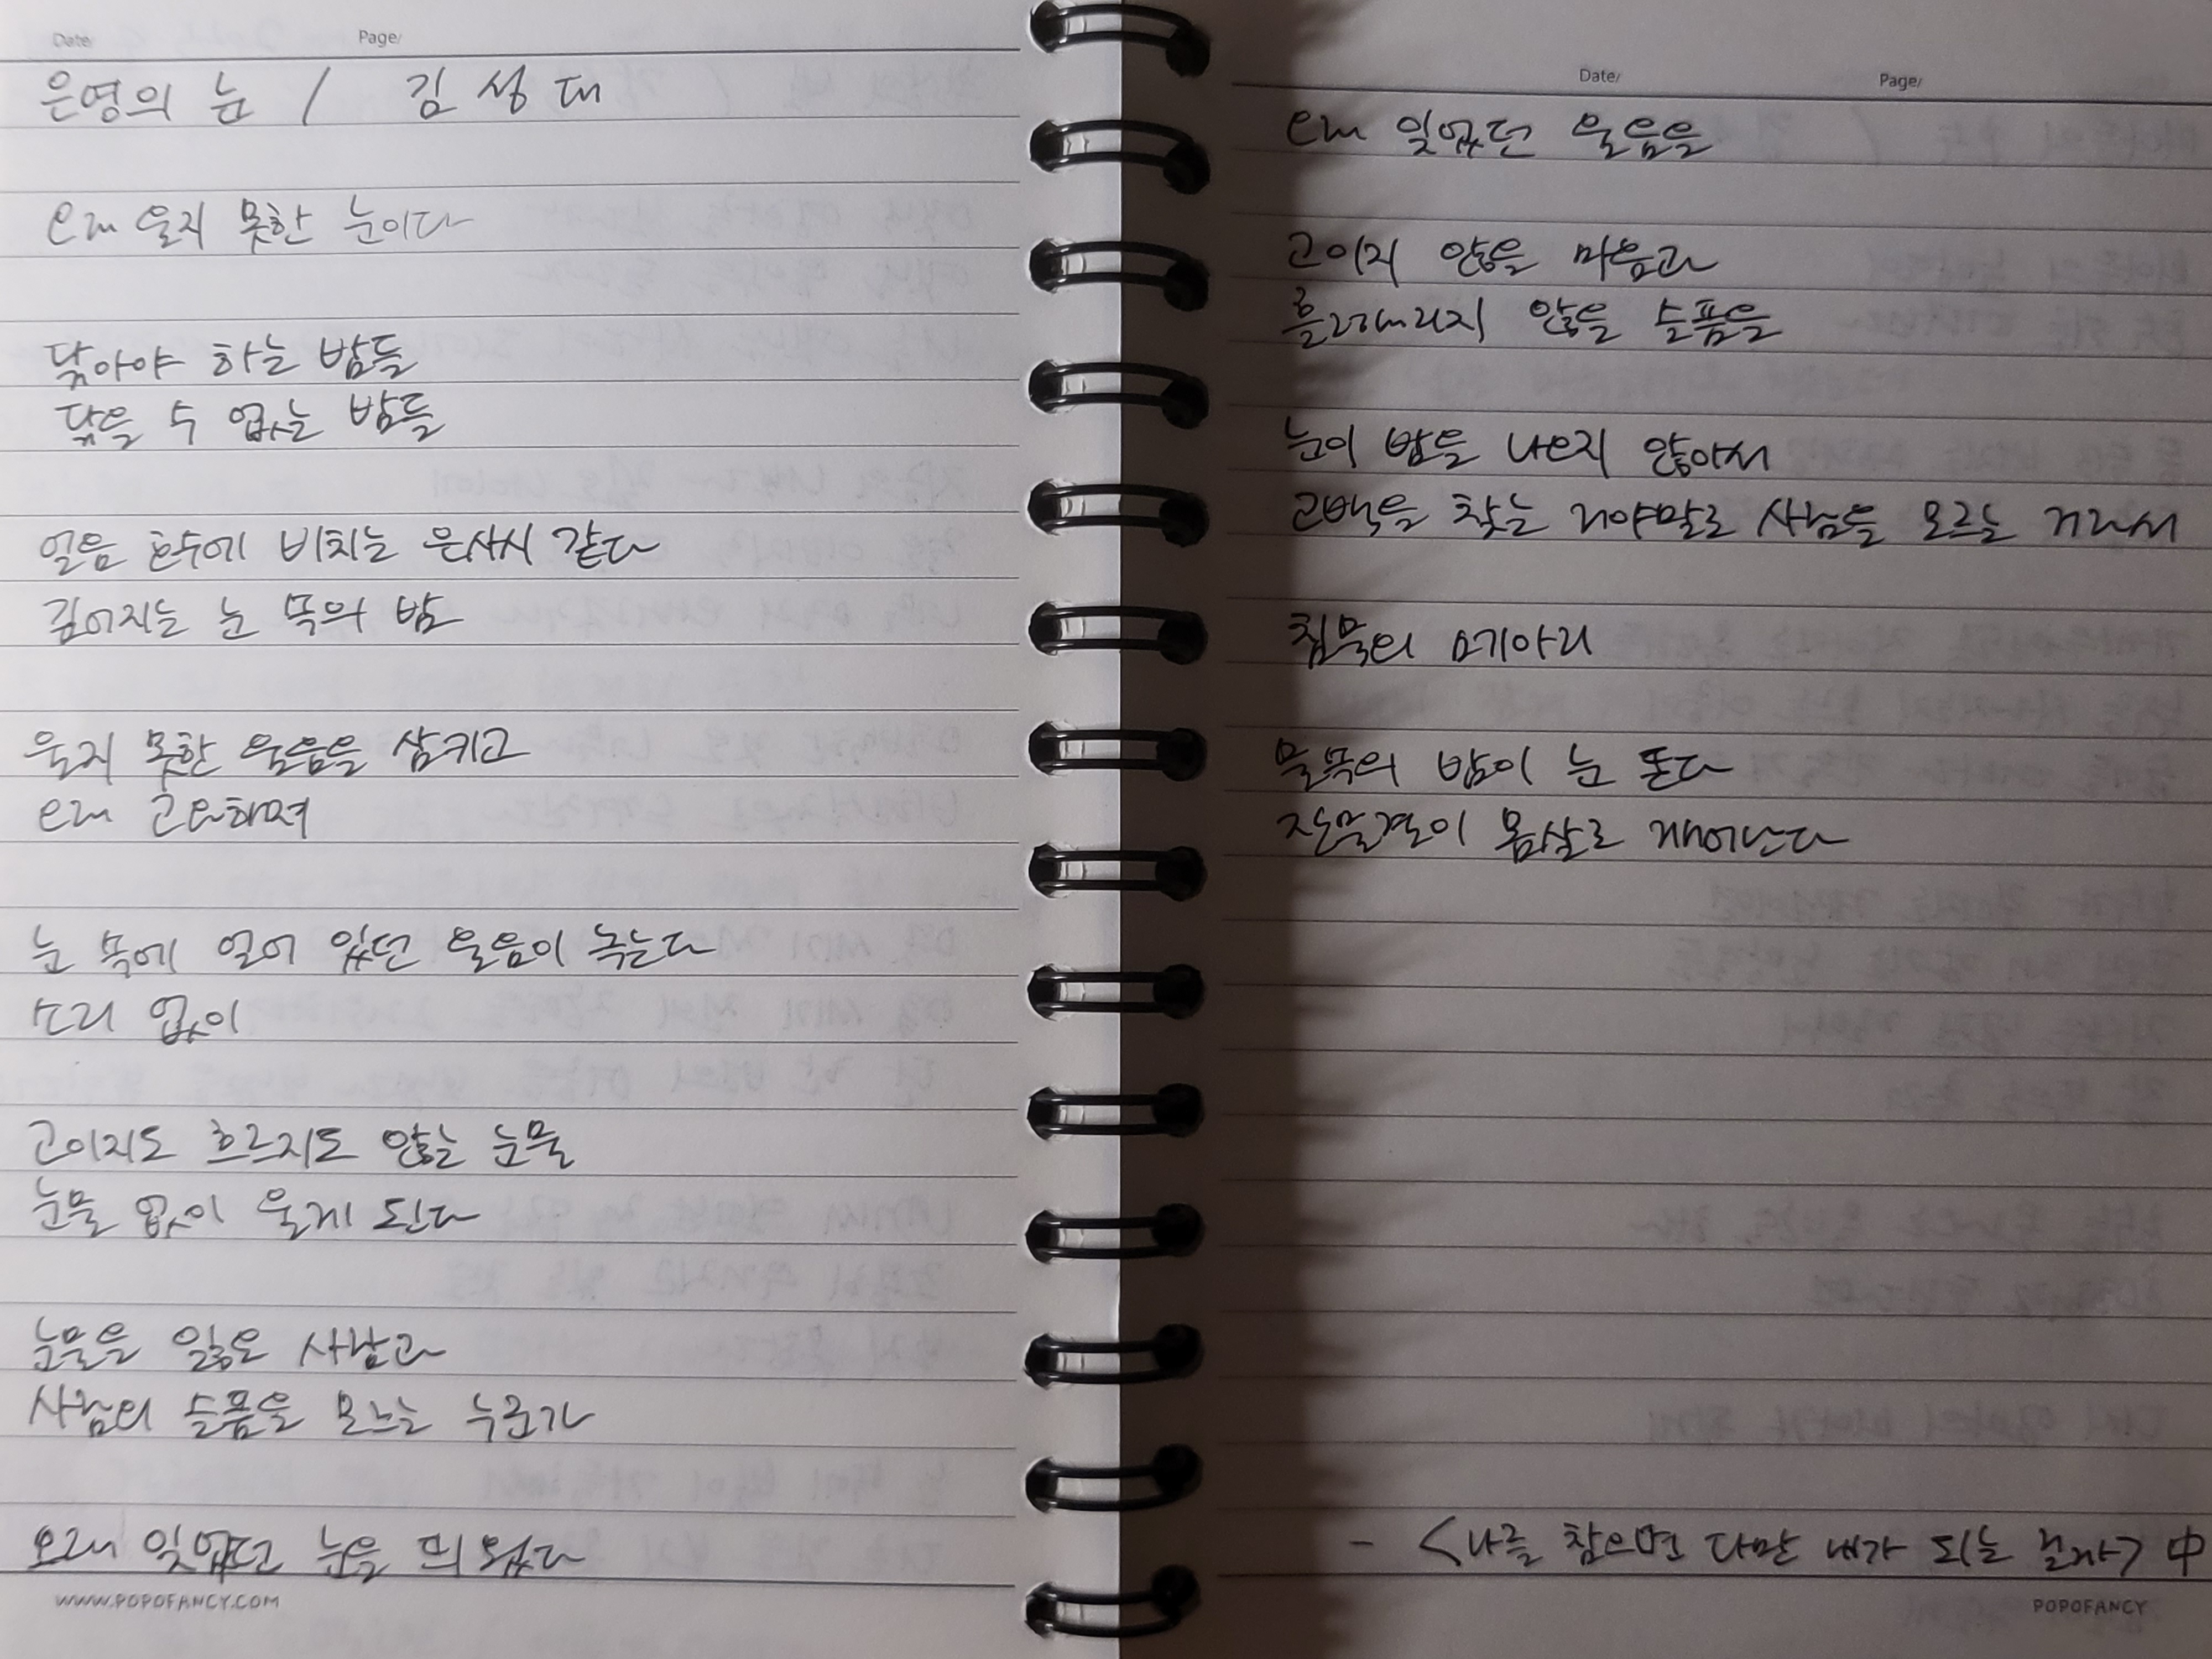 Date/ Page/
은영의 눈 / 김성대
오래 울지 못한 눈이다
닦아야 하는 밤들
닦을 수 없는 밤들
얼음 호수에 비치는 은사시 같다
깊어지는 눈 속의 밤
울지 못한 울음을 삼키고
오래 고요하여
눈 속에 얼어 있던 울음이 녹는다
소리 없이
고이지도 흐르지도 않는 눈물
눈물 없이 울게 된다
눈물을 잃은 사람과
사람의 슬픔을 모르는 누군가
오래 잊었던 눈을 띄웠다
WWW.POPOFANCY.COM
Date/ Page/
오래 잊었던 울음을
고이지 않을 마음과
흘려버리지 않을 슬픔을
눈이 밤을 나오지 않아서
고백을 찾는 거야말로 사람을 모르는 거라서
침묵의 메아리
물속의 밤이 눈 뜬다
잔물결이 몸살로 깨어난다
- <나를 참으면 다만 내가 되는 걸까> 中
POPOFANCY